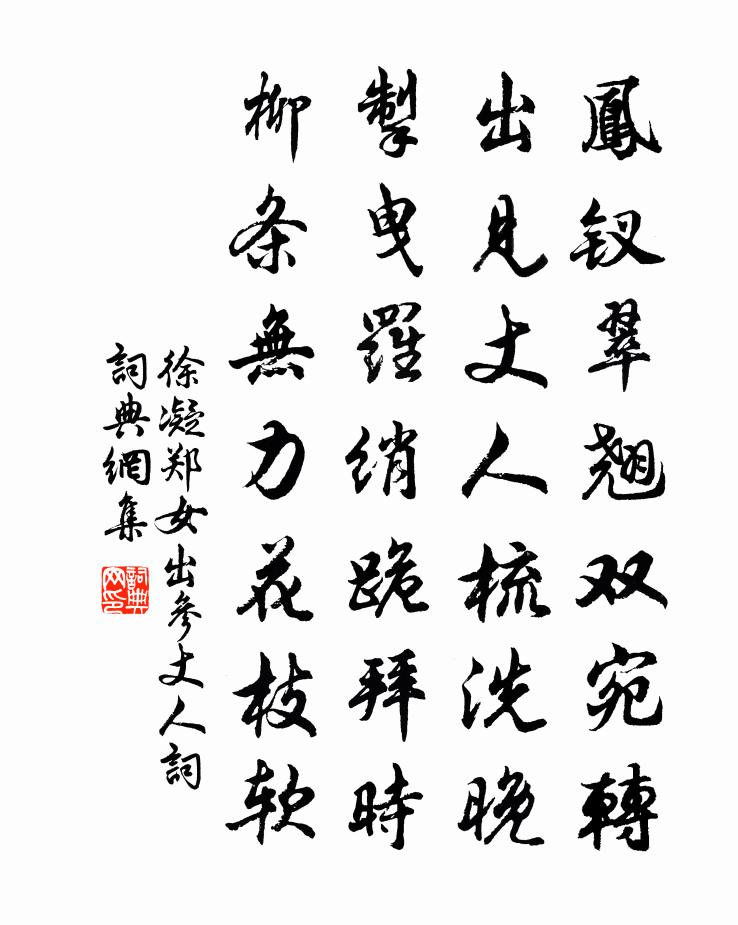 鳳钗翠翘双宛轉
出見丈人梳洗晚
掣曳羅绡跪拜時
柳条無力花枝软
徐凝郑女出參丈人詞
詞典網集
詞典網印